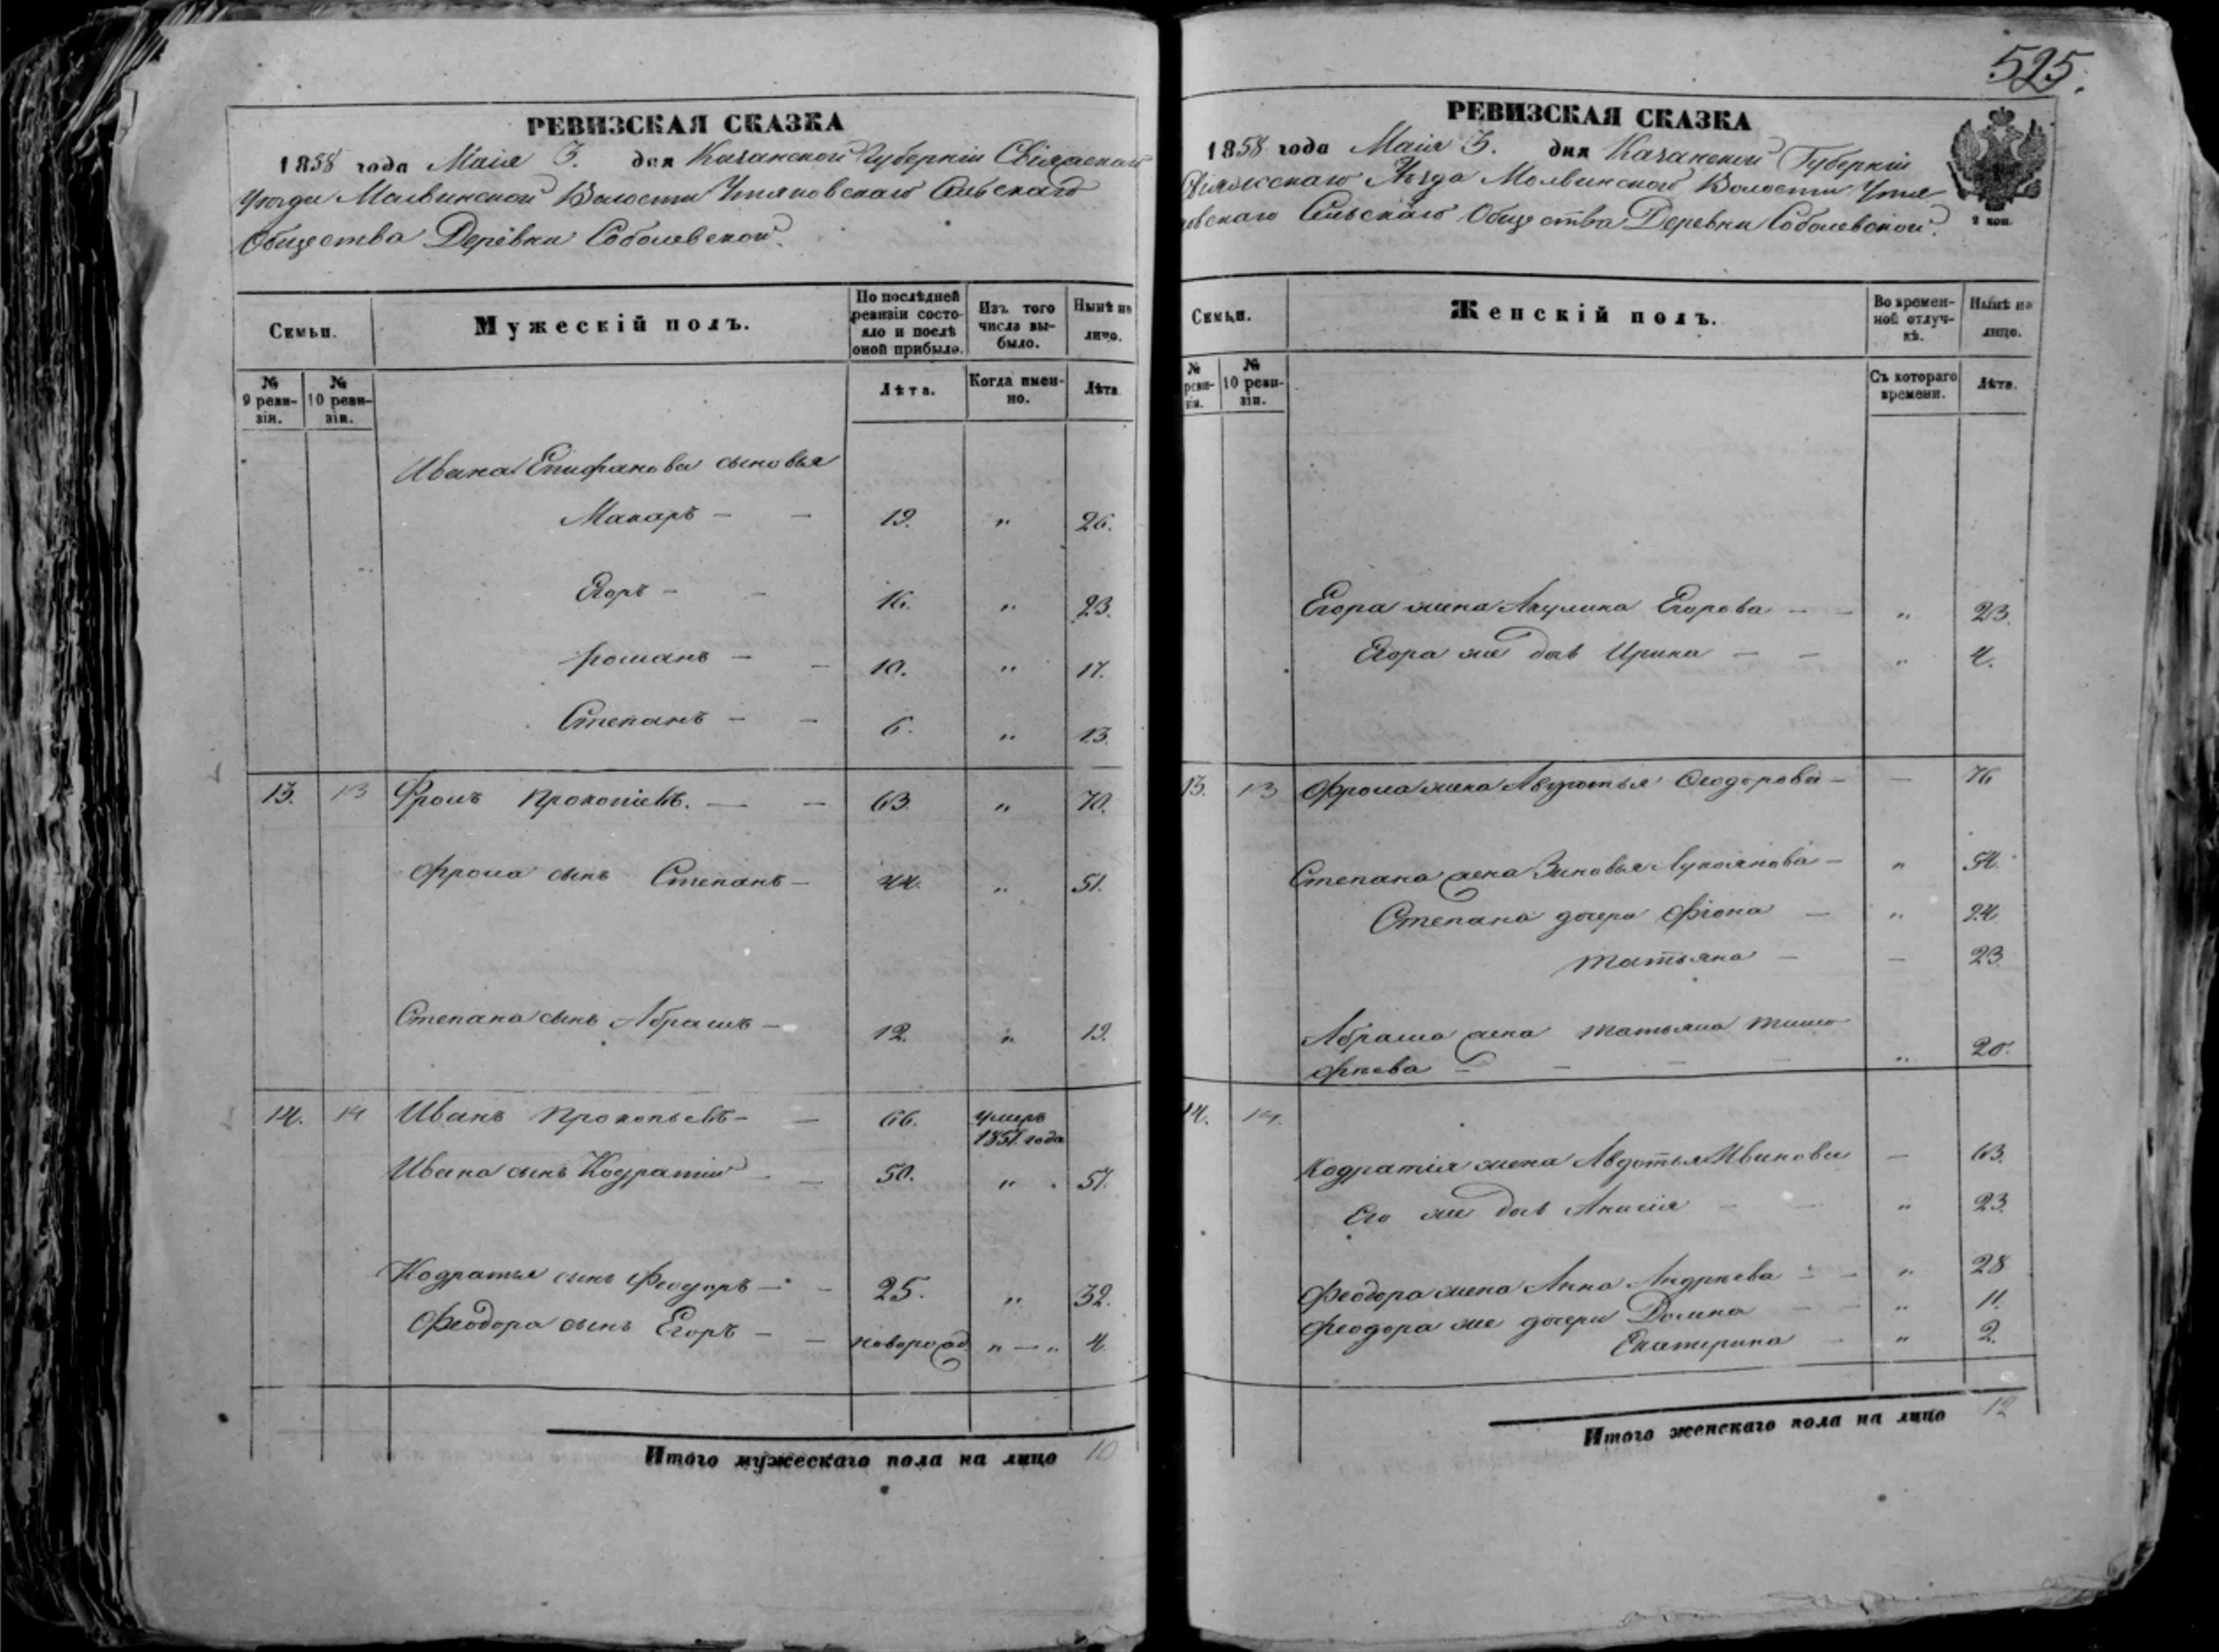 525.
РЕВИЗСКАЯ СКАЗКА
1858 года Маія 3. дня Казанской Губерніи Свіяжскаго
Уѣзда Молвинской Волости Утяковскаго Сельскаго
Общества Деревни Соболевской.
Семьи.
Мужескій полъ.
По послѣдней ревизіи состояло и послѣ оной прибыло.
Изъ того числа выбыло.
Нынѣ на лицо.
№ 9 ревизіи.
№ 10 ревизіи.
Лѣта.
Когда именно.
Лѣта.
Ивана Епифанова сыновья
Макаръ — — 19. " 26.
Егоръ — — 16. " 23.
Романъ — — 10. " 17.
Степанъ — — 6. " 13.
13. 13 Фролъ Прокопіевъ. — — 63. " 70.
Фрола сынъ Степанъ — 44. " 51.
Степана сынъ Абрамъ — 12. " 19.
14. 14 Иванъ Прокопьевъ — — 66. умеръ
1851 года
Ивана сынъ Кодратій — — 50. " 57.
Кодратья сынъ Феодоръ — — 25. " 32.
Феодора сынъ Егоръ — — новорожд " — " 4.
Итого мужескаго пола на лицо 10
РЕВИЗСКАЯ СКАЗКА
1858 года Маія 3. дня Казанской Губерніи
Свіяжскаго Уѣзда Молвинской Волости Утя
ковскаго Сельскаго Общества Деревни Соболевской.
2 коп.
Семьи.
Женскій полъ.
Во временной отлучкѣ.
Нынѣ на лицо.
№ ревизіи.
№ 10 ревизіи.
Съ котораго времени.
Лѣта.
Егора жена Акулина Егорова — — " 23.
Егора же дочь Ирина — — " 4.
13. 13 Фрола жена Авдотья Феодорова — — 76
Степана жена Зиновья Лукоянова — " 54.
Степана дочери Фіона — " 24.
Татьяна — — 23
Абрама жена Татьяна Тимо
фѣева — — — — " 20.
14. 14.
Кодратія жена Авдотья Иванова — 63.
Его же дочь — — " 23.
Феодора жена Анна Андрѣева — — " 28
Феодора же дочери Домна — — " 11.
Екатерина — " 2.
Итого женскаго пола на лицо 12